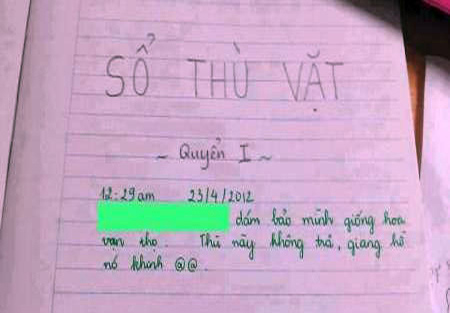 SỔ THÙ VẶT
~ Quyển I ~
12:29 am 23/4/2012
dám bảo mình giống hoa
vạn thọ. Thù này không trả, giang hồ
nó khinh @@.